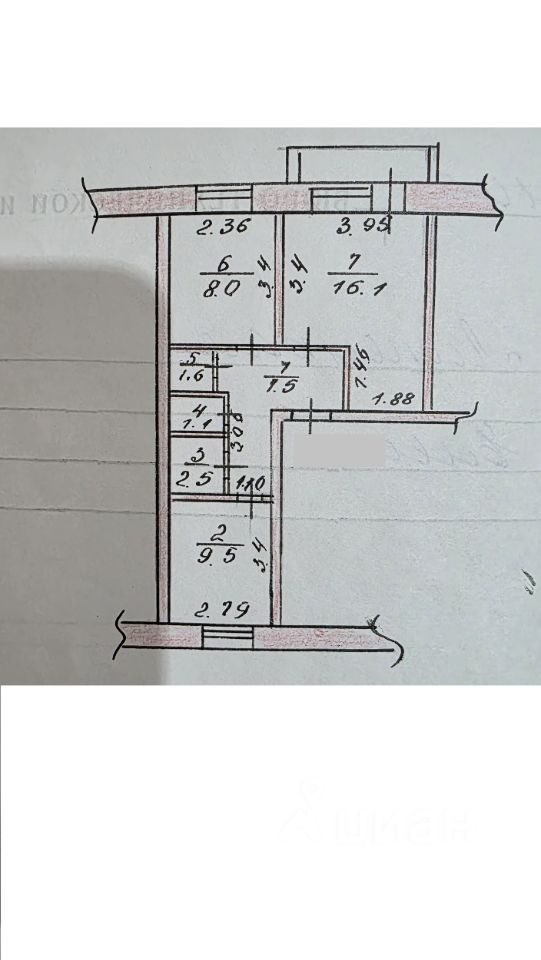 2.36
3.95
6
8.0
3.4
3.4
7
16.1
5
1.6
1
7.5
1.46
1.88
4
1.1
3.08
3
2.5
1.10
2
9.5
3.4
2.79
циан